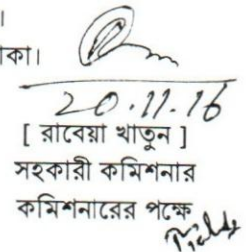 ।
কা।
20.11.16
[ রাবেয়া খাতুন ]
সহকারী কমিশনার
কমিশনারের পক্ষে